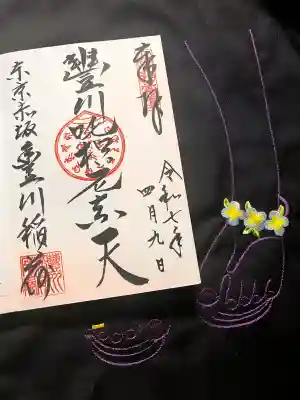 奉拝
令和七年
四月九日
豐川吒枳尼真天
東京赤坂
豊川稲荷